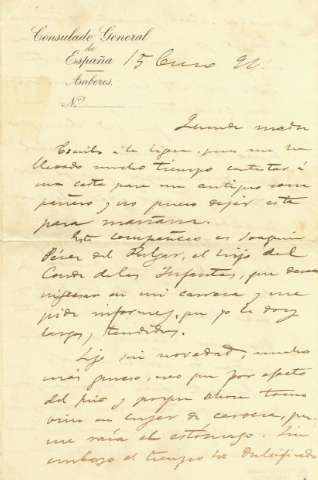 Consulado General
de
España
Amberes.
N.º
15 Enero 90.
Querida madre
Escribo á la ligera, pues me ha
llevado mucho tiempo contestar á
una carta para un antiguo com
pañero, y no puedo dejar esta
para mañana.
Este compañero es Joaquin
Pérez del Pulgar, el hijo del
Conde de las Infantas, que desea
ingresar en mi carrera y me
pide informes, que yo le doy
largos y tendidos.
Sigo sin novedad, mucho
más grueso, creo que por efecto
del frio y porque ahora tomo
vino en lugar de cerveza, que
me hacía el estómago. Sin
embargo el tiempo ha dulcificado